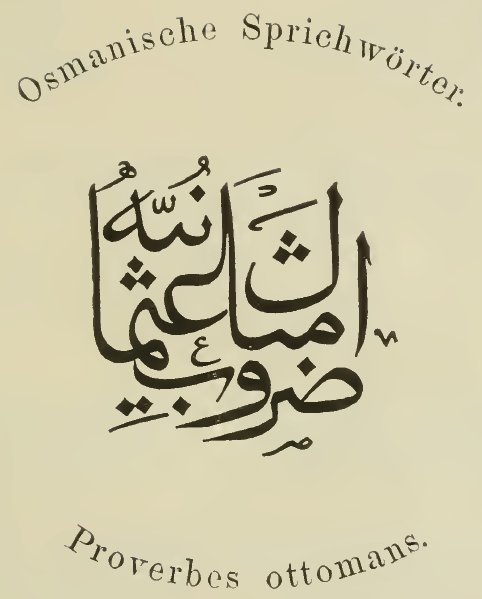 Osmanische Sprichwörter.
ضروبِ امثال عثمانيّه
Proverbes ottomans.